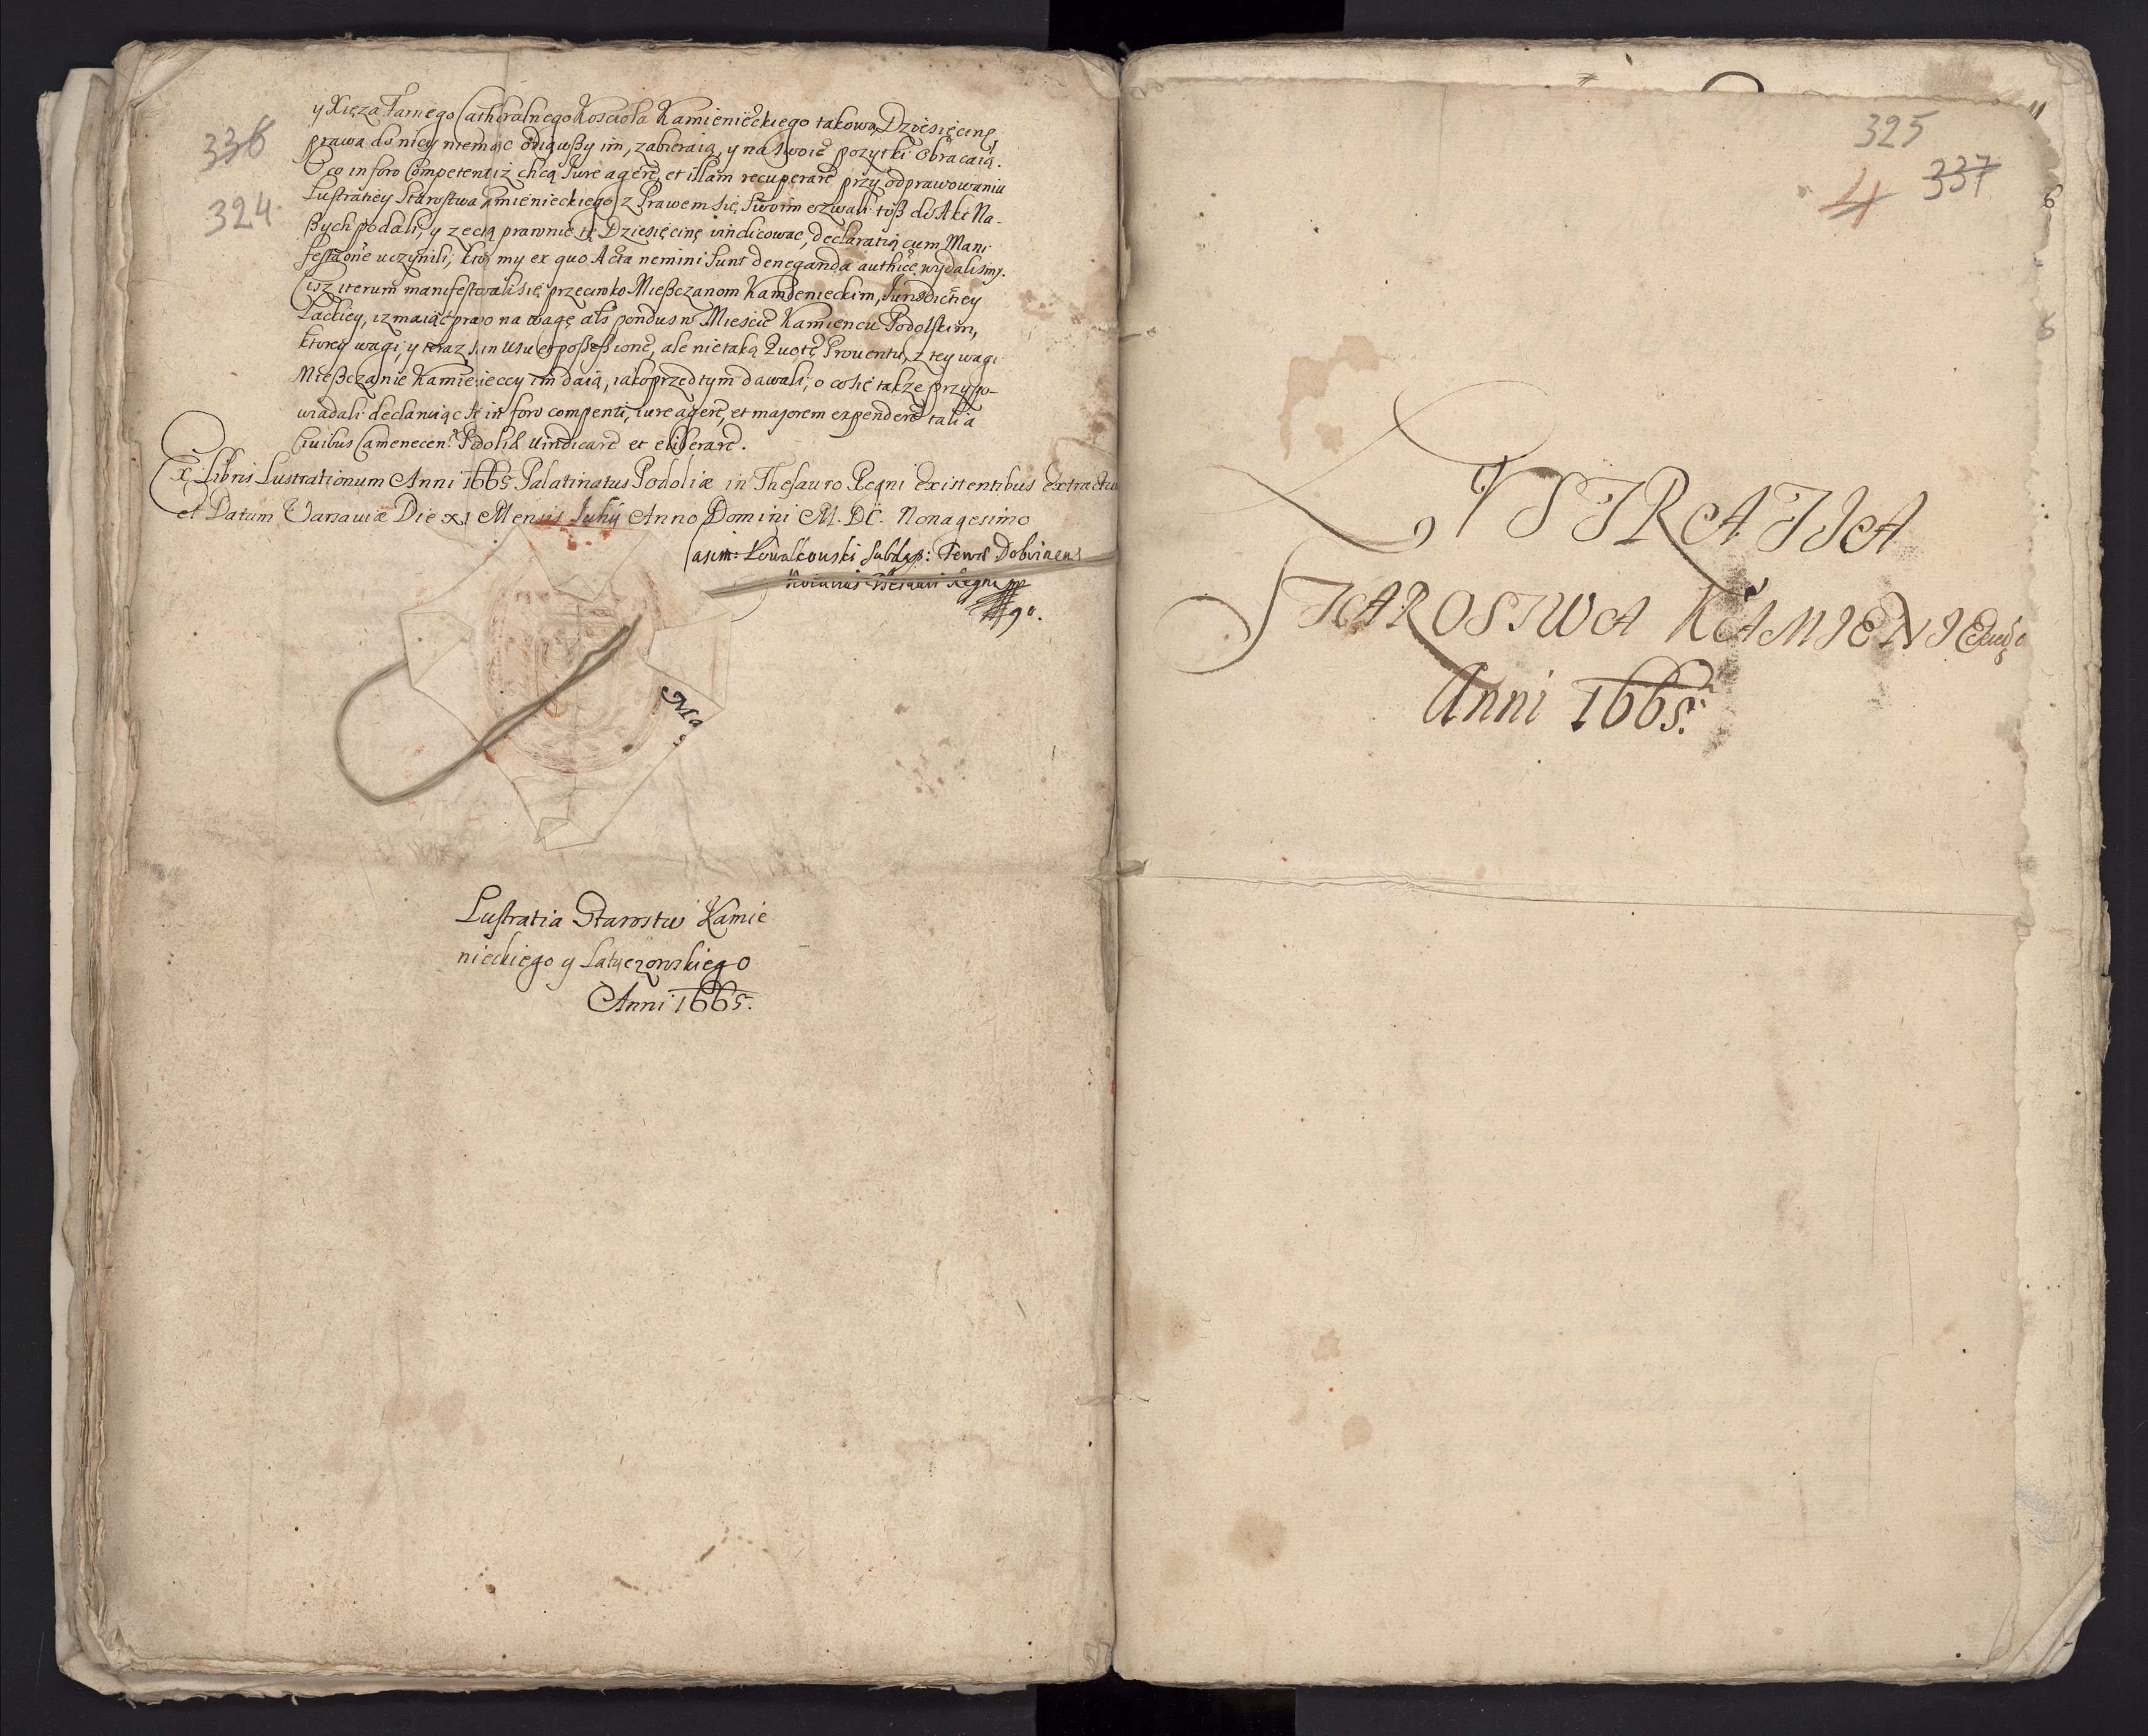 336
324
y Xięza Farnego Cathedralnego Kosciola Kamienieckiego takową Dziesięcinę
prawa do niey niemaiąc odiąwßy im, zabieraią, y na swoie pozytki obracaią.
O co in foro Competenti iż chcą Iure agere, et illam recuperare przy odprawowaniu
Lustratiey Starostwa Kamienieckiego z Prawem się swoim ozwali toß do Akt Na-
ßych podali, y ze chcą prawnie tę Dziesięcinę vindicowac, declaratią cum Mani
festaone uczynili; ktorą my ex quo Acta nemini sunt deneganda authce wydalismy.
Ciż iterum manifestowali się przeciwko Mießczanom Kamienieckim, Iurisdictiey
Lackiey, iz maiąc prawo na wagę als pondus w Miescie Kamiencu Podolskim,
ktorey wagi, y teraz są in usu et poßeßione, ale nie taką Quotę Proventu, z tey wagi
Mießczanie Kamienieccy im daią, iako przedtym dawali, o co się także przypo-
wiadali declaruiąc się in foro compenti, iure agere, et majorem expendere talia
Civibus Camenecen: Podoliæ vindicare et eliberare.
Ex Libris Lustrationum Anni 1665 Palatinatus Podoliæ in Thesauro Regni existentibus extractum
et Datum Varsaviæ Die XI Mensis Julij Anno Domini M. DC. Nonagesimo
Casim: Kowalkowski Subdap: Terræ Dobrinens
Notarius Thesauri Regni mp
90.
Lustratia Starostw Kamie
nieckiego y Latyczowskiego
Anni 1665.
325
337
4
LVSTRATIA
STAROSTWA KAMIENIEckieo
Anni 1665.